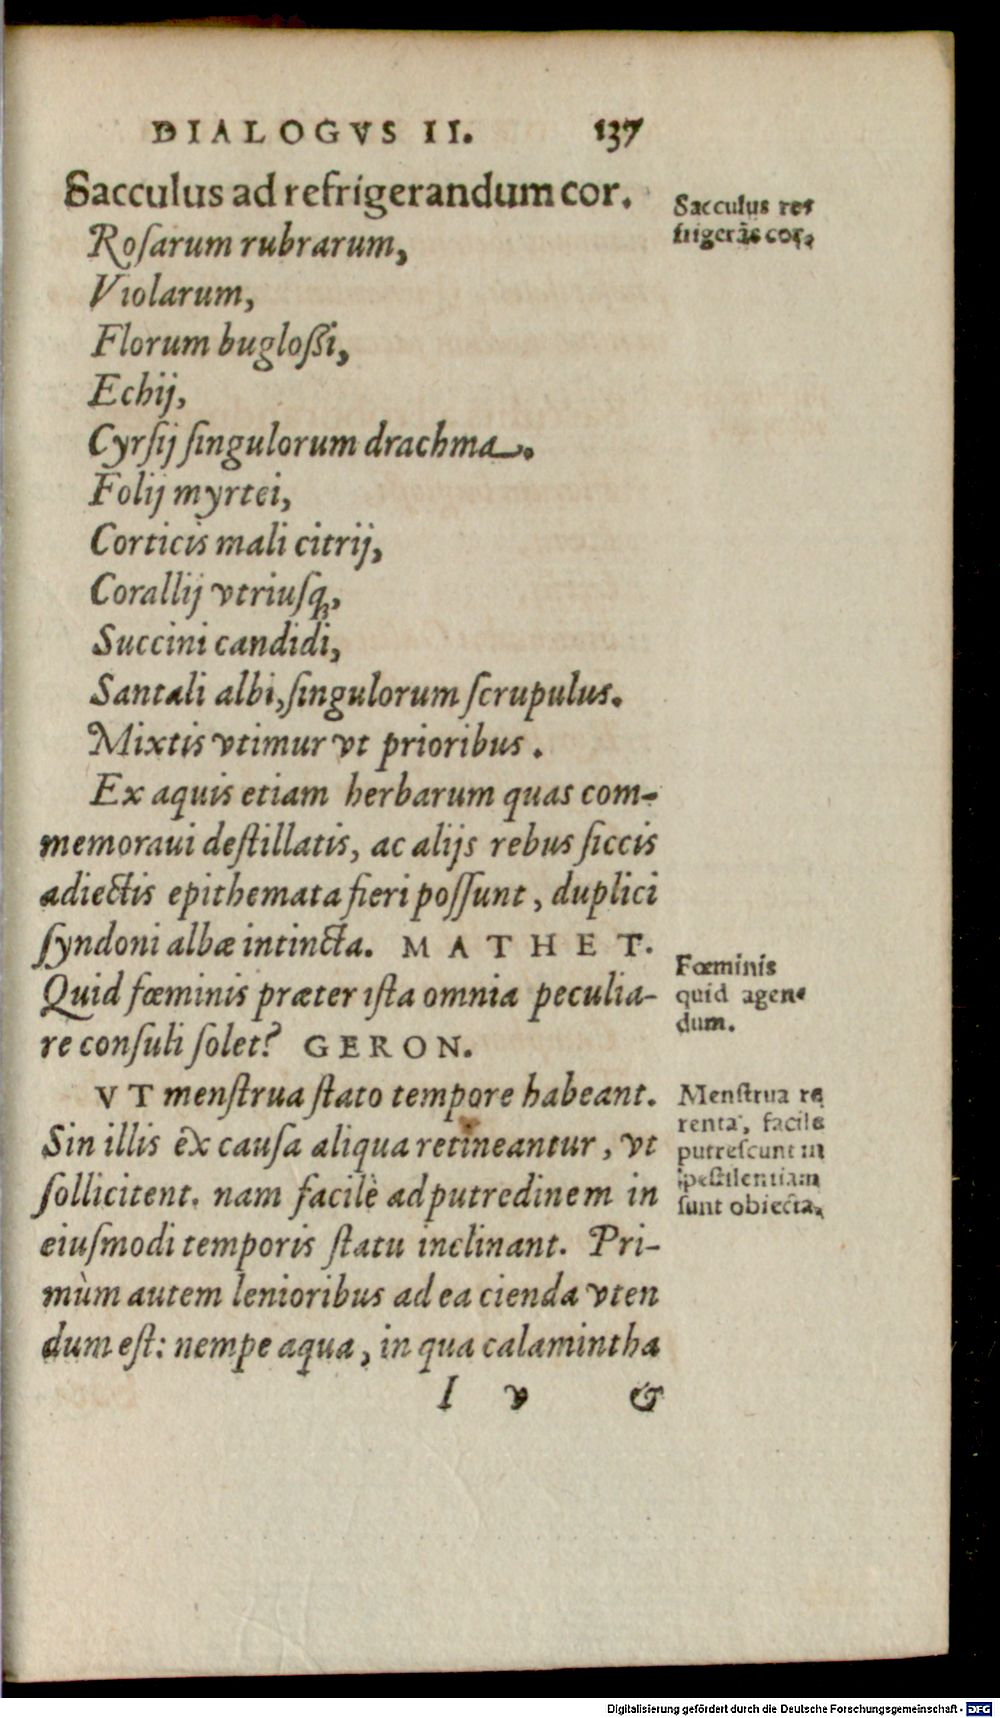 DIALOGVS II. 137
Sacculus ad refrigerandum cor.
Sacculus re-
frigerãs cor.
Rosarum rubrarum,
Violarum,
Florum bugloßi,
Echij,
Cyrsij singulorum drachma.
Folij myrtei,
Corticis mali citrij,
Corallij vtriusq́;,
Succini candidi,
Santali albi, singulorum scrupulus.
Mixtis vtimur vt prioribus.
Ex aquis etiam herbarum quas com-
memoraui destillatis, ac alijs rebus siccis
adiectis epithemata fieri possunt, duplici
syndoni albæ intincta. MATHET.
Quid fœminis præter ista omnia peculia-
re consuli solet? GERON.
Fœminis
quid agen-
dum.
VT menstrua stato tempore habeant.
Sin illis ex causa aliqua retineantur, vt
sollicitent. nam facilè ad putredinem in
eiusmodi temporis statu inclinant. Pri-
mùm autem lenioribus ad ea cienda vten
dum est: nempe aqua, in qua calamintha
Menstrua re
tenta, facile
putrescunt in
pestilentiam
sunt obiecta.
I v &
Digitalisierung gefördert durch die Deutsche Forschungsgemeinschaft - DFG